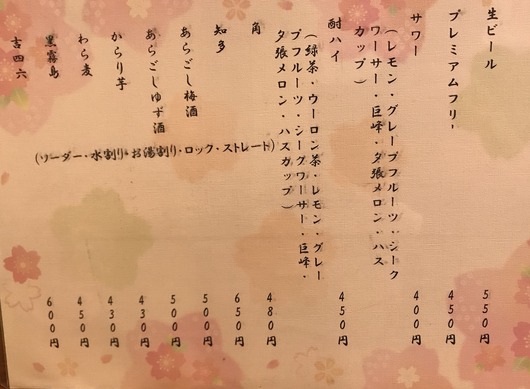 生ビール 550円
プレミアムフリー 450円
サワー 400円
(レモン・グレープフルーツ・シーク
ワーサー・巨峰・夕張メロン・ハス
カップ)
酎ハイ 450円
(緑茶・ウーロン茶・レモン・グレー
プフルーツ・シークワーサー・巨峰・
夕張メロン・ハスカップ)
角 480円
知多 650円
あらごし梅酒 500円
あらごしゆず酒 500円
からり芋 430円
わら麦 430円
黒霧島 450円
吉四六 600円
(ソーダー・水割り・お湯割り・ロック・ストレート)